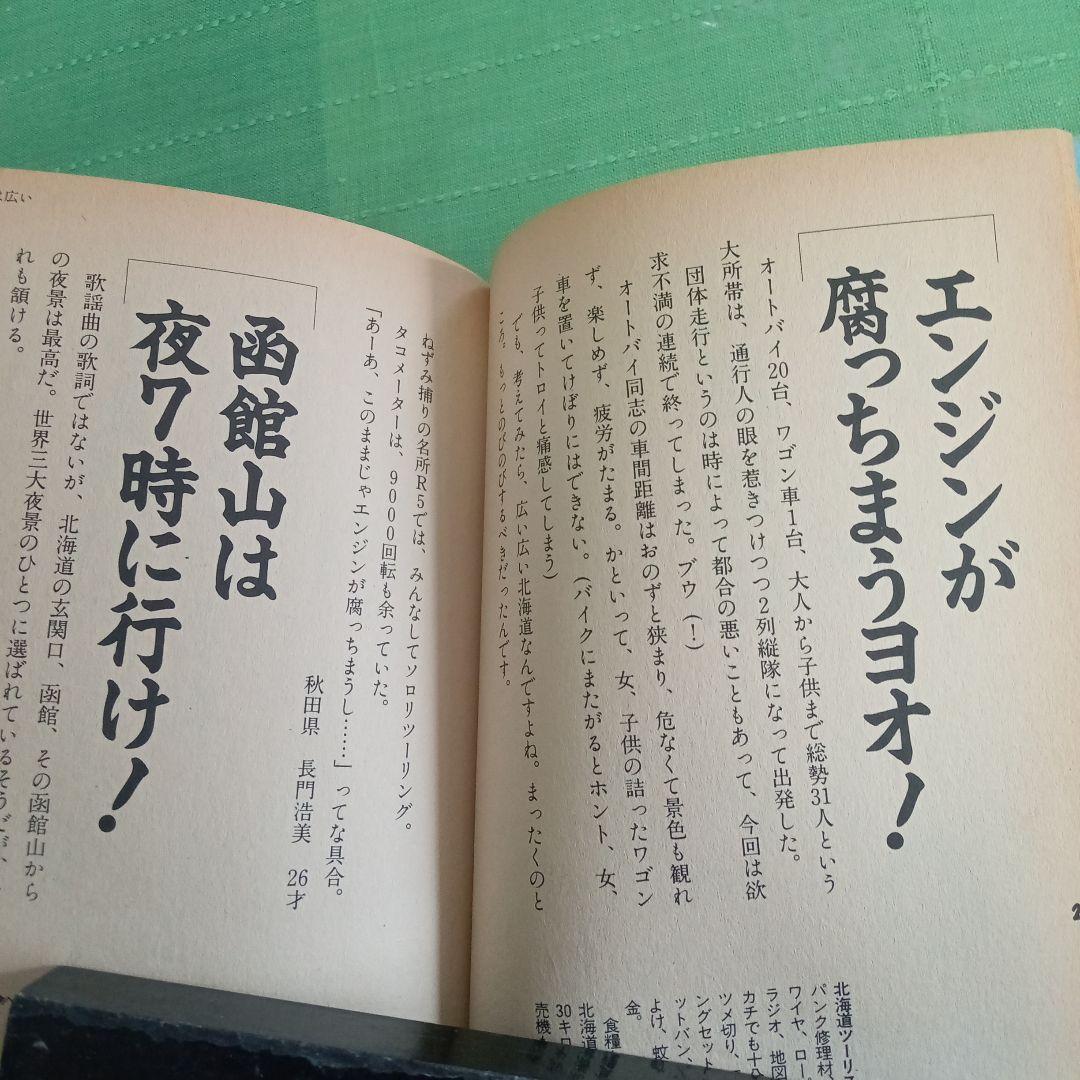 エンジンが
腐っちまうヨオ！
オートバイ20台、ワゴン車1台、大人から子供まで総勢31人という
大所帯は、通行人の眼を惹きつけつつ2列縦隊になって出発した。
団体走行というのは時によって都合の悪いこともあって、今回は欲
求不満の連続で終ってしまった。ブウ（！）
オートバイ同志の車間距離はおのずと狭まり、危なくて景色も観れ
ず、楽しめず、疲労がたまる。かといって、女、子供の詰ったワゴン
車を置いてけぼりにはできない。（バイクにまたがるとホント、女、
子供ってトロイと痛感してしまう）
でも、考えてみたら、広い広い北海道なんですよね。まったくのと
ころ。もっとのびのびするべきだったんです。
北海道ツーリス
パンク修理材、
ワイヤ、ロー
ラジオ、地図
カチでも十分
ツメ切り、
ングセット
ットバン、
よけ、蚊
金。
食糧
北海道
30キロ
売機
ねずみ捕りの名所R5では、みんなしてソロリツーリング。
タコメーターは、9000回転も余っていた。
「あーあ、このままじゃエンジンが腐っちまうし……」ってな具合。
秋田県　長門浩美　26才
広い
函館山は
夜7時に行け！
歌謡曲の歌詞ではないが、北海道の玄関口、函館、その函館山から
の夜景は最高だ。世界三大夜景のひとつに選ばれているそうだが、
れも頷ける。